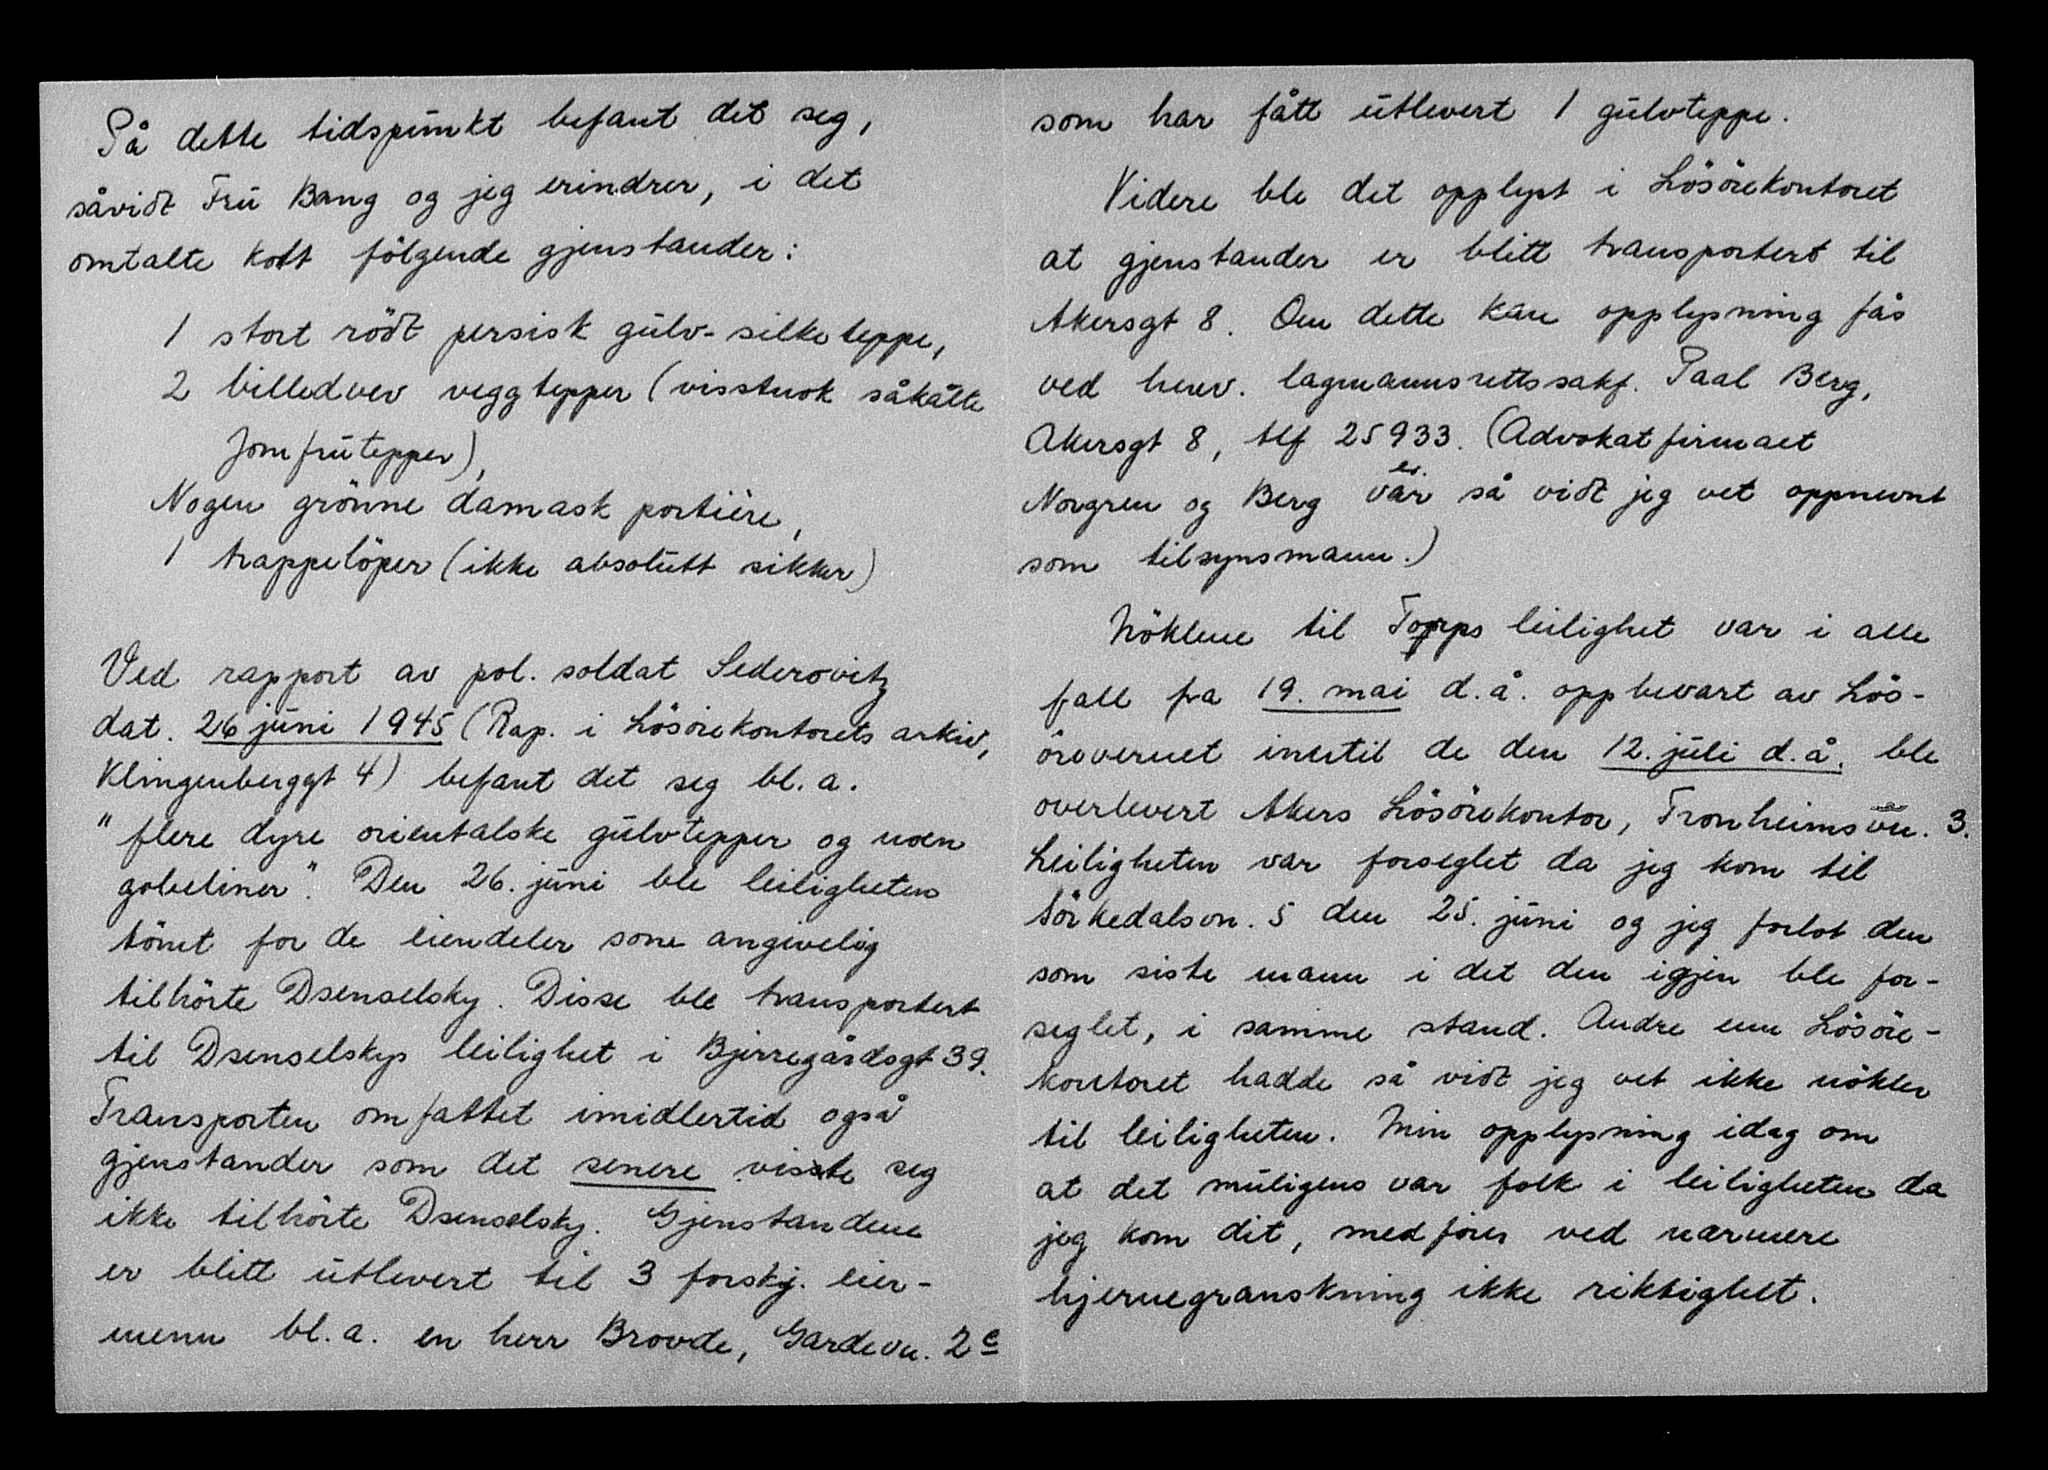 På dette tidspunkt befant det seg,
såvidt Fru Bang og jeg erindrer, i det
omtalte kott følgende gjenstander:
1 stort rödt persisk gulv-silketeppe,
2 billedvev veggtepper (visstnok såkalte
Jomfrutepper),
Nogen grönne damask portière,
1 trappelöper (ikke absolutt sikker)
Ved rapport av pol. soldat Sederovitz
dat. 26 juni 1945 (Rap. i Lösörekontorets arkiv,
Klingenberggt 4) befant det seg bl. a.
"flere dyre orientalske gulvtepper og noen
gobeliner". Den 26. juni ble leiligheten
tömt for de eiendeler som angivelig
tilhörte Dsenselsky. Disse ble transportert
til Dsenselskys leilighet i Bjerregårdsgt 39.
Transporten omfattet imidlertid også
gjenstander som det senere viste seg
ikke tilhörte Dsenselsky. Gjenstandene
er blitt utlevert til 3 forskj. eier-
menn bl. a. en herr Brovde, Gardevn. 2c
som har fått utlevert 1 gulvteppe.
Videre ble det opplyst i Lösörekontoret
at gjenstander er blitt transportert til
Akersgt 8. Om dette kan opplysning fås
ved henv. lagmannsrettssakf. Paal Berg,
Akersgt 8, tlf 25933. (Advokatfirmaet
Norgren og Berg var er så vidt jeg vet oppnevnt
som tilsynsmann.)
Nöklene til Topps leilighet var i alle
fall fra 19. mai d. å. oppbevart av Lös-
örevernet inntil de den 12. juli d. å. ble
overlevert Akers Lösörekontor, Tronheimsvn. 3.
Leiligheten var forseglet da jeg kom til
Sörkedalsvn. 5 den 25. juni og jeg forlot den
som siste mann i det den igjen ble for-
seglet, i samme stand. Andre enn Lösöre-
kontoret hadde så vidt jeg vet ikke nökler
til leiligheten. Min opplysning idag om
at det muligens var folk i leiligheten da
jeg kom dit, medförer ved nærmere
hjernegranskning ikke riktighet.